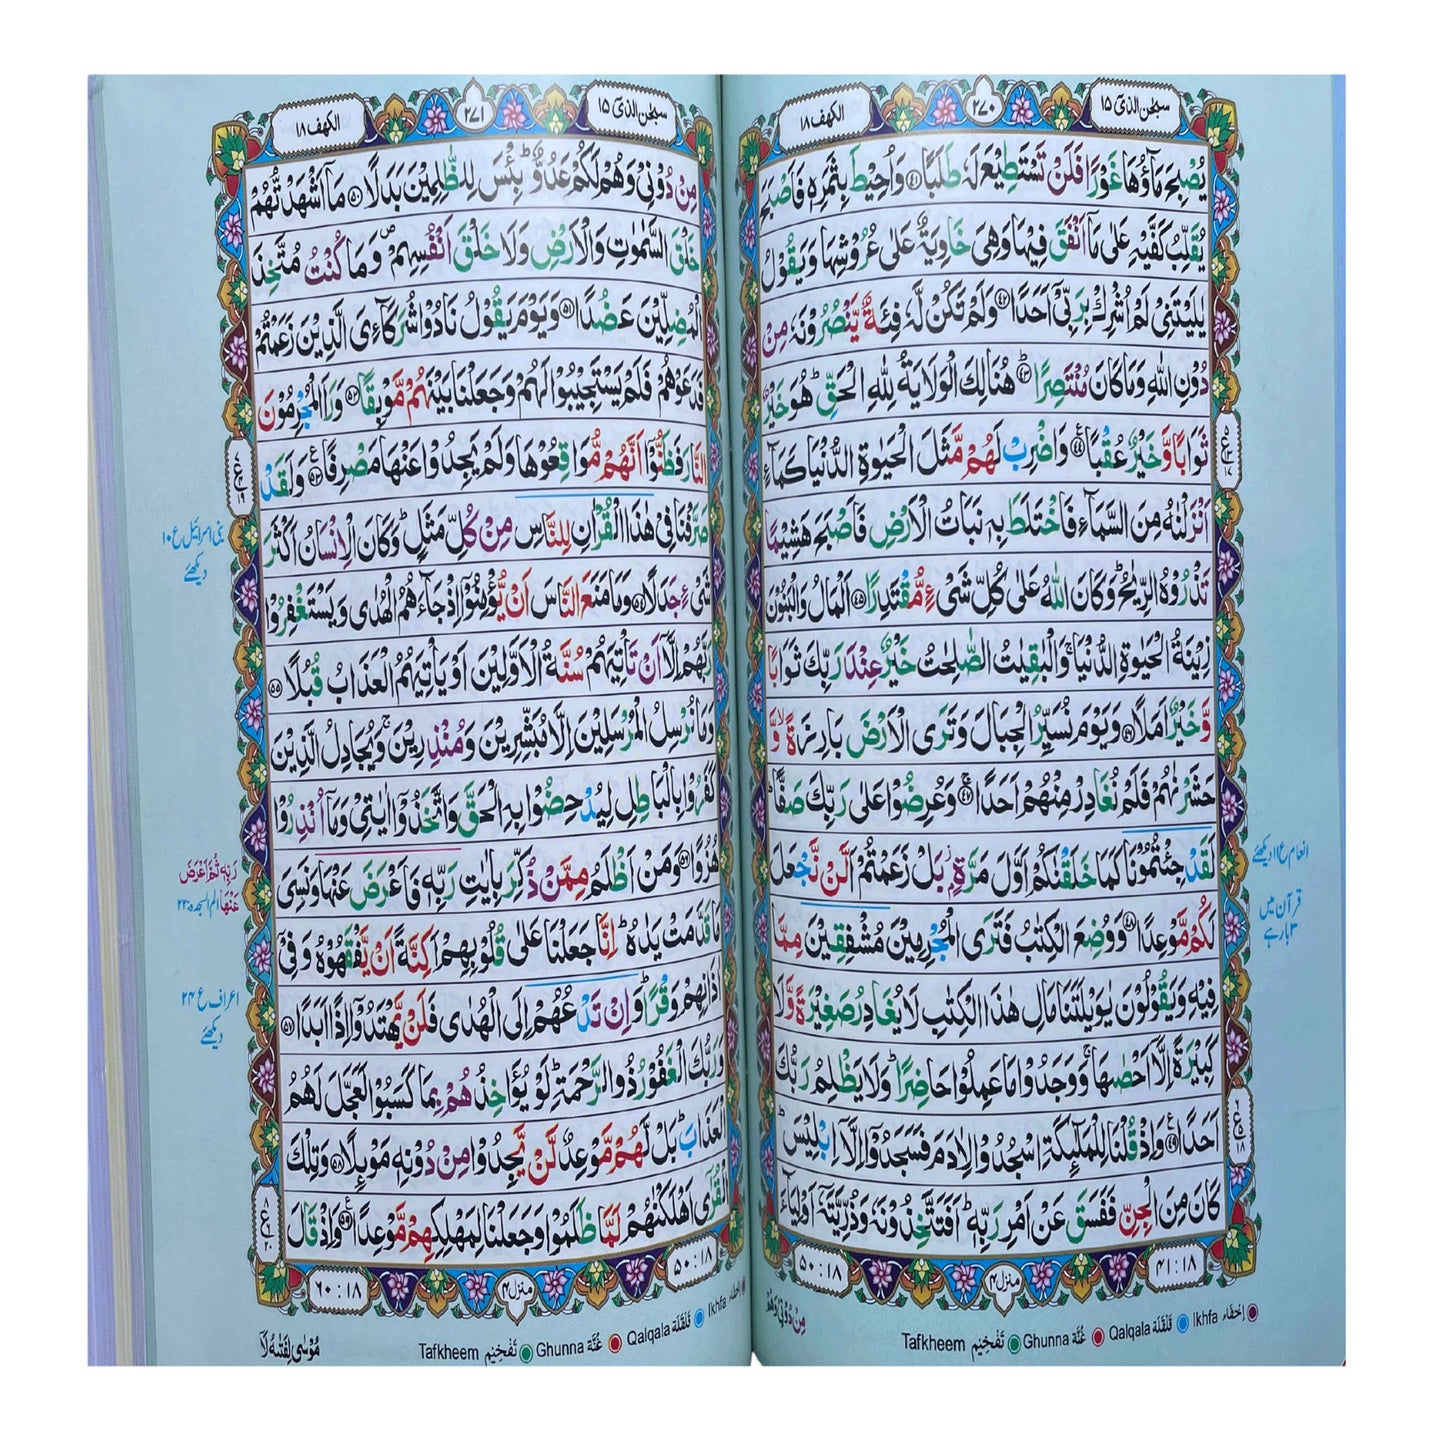 سبحٰن الذیٓ ۱۵
۲۷۰
الکهف ۱۸
يُصْبِحَ مَآؤُهَا غَوْرًا فَلَنْ تَسْتَطِيْعَ لَهٗ طَلَبًا ۴۱ وَاُحِيْطَ بِثَمَرِهٖ فَاَصْبَحَ
يُقَلِّبُ كَفَّيْهِ عَلٰى مَآ اَنْفَقَ فِيْهَا وَهِىَ خَاوِيَةٌ عَلٰى عُرُوْشِهَا وَيَقُوْلُ
يٰلَيْتَنِىْ لَمْ اُشْرِكْ بِرَبِّىْٓ اَحَدًا ۴۲ وَلَمْ تَكُنْ لَّهٗ فِئَةٌ يَّنْصُرُوْنَهٗ مِنْ
دُوْنِ اللّٰهِ وَمَا كَانَ مُنْتَصِرًا ۴۳ هُنَالِكَ الْوَلَايَةُ لِلّٰهِ الْحَقِّ ؕ هُوَ خَيْرٌ
ثَوَابًا وَّخَيْرٌ عُقْبًا ۴۴ وَاضْرِبْ لَهُمْ مَّثَلَ الْحَيٰوةِ الدُّنْيَا كَمَآءٍ
اَنْزَلْنٰهُ مِنَ السَّمَآءِ فَاخْتَلَطَ بِهٖ نَبَاتُ الْاَرْضِ فَاَصْبَحَ هَشِيْمًا
تَذْرُوْهُ الرِّيٰحُ ؕ وَكَانَ اللّٰهُ عَلٰى كُلِّ شَىْءٍ مُّقْتَدِرًا ۴۵ اَلْمَالُ وَالْبَنُوْنَ
زِيْنَةُ الْحَيٰوةِ الدُّنْيَا ۚ وَالْبٰقِيٰتُ الصّٰلِحٰتُ خَيْرٌ عِنْدَ رَبِّكَ ثَوَابًا
وَّخَيْرٌ اَمَلًا ۴۶ وَيَوْمَ نُسَيِّرُ الْجِبَالَ وَتَرَى الْاَرْضَ بَارِزَةً ۙ وَّ
حَشَرْنٰهُمْ فَلَمْ نُغَادِرْ مِنْهُمْ اَحَدًا ۴۷ وَعُرِضُوْا عَلٰى رَبِّكَ صَفًّا ؕ
لَقَدْ جِئْتُمُوْنَا كَمَا خَلَقْنٰكُمْ اَوَّلَ مَرَّةٍ ۢ بَلْ زَعَمْتُمْ اَلَّنْ نَّجْعَلَ
لَكُمْ مَّوْعِدًا ۴۸ وَوُضِعَ الْكِتٰبُ فَتَرَى الْمُجْرِمِيْنَ مُشْفِقِيْنَ مِمَّا
فِيْهِ وَيَقُوْلُوْنَ يٰوَيْلَتَنَا مَالِ هٰذَا الْكِتٰبِ لَا يُغَادِرُ صَغِيْرَةً وَّلَا
كَبِيْرَةً اِلَّآ اَحْصٰىهَا ۚ وَوَجَدُوْا مَا عَمِلُوْا حَاضِرًا ؕ وَلَا يَظْلِمُ رَبُّكَ
اَحَدًا ۴۹ وَاِذْ قُلْنَا لِلْمَلٰٓئِكَةِ اسْجُدُوْا لِاٰدَمَ فَسَجَدُوْٓا اِلَّآ اِبْلِيْسَ ؕ
كَانَ مِنَ الْجِنِّ فَفَسَقَ عَنْ اَمْرِ رَبِّهٖ ؕ اَفَتَتَّخِذُوْنَهٗ وَذُرِّيَّتَهٗٓ اَوْلِيَآءَ
انعام ع ۱۱ دیکھئے
قرآن میں
۳ بار ہے
۴۱ : ۱۸
منزل ۴
۵۰ : ۱۸
مِنْ دُوْنِىْ وَهُمْ
Tafkheem تَفْخِيْم Ghunna غُنَّة Qalqala قَلْقَلَة Ikhfa إخفَاء
سبحٰن الذیٓ ۱۵
۲۷۱
الکهف ۱۸
مِنْ دُوْنِىْ وَهُمْ لَكُمْ عَدُوٌّ ؕ بِئْسَ لِلظّٰلِمِيْنَ بَدَلًا ۵۰ مَآ اَشْهَدْتُّهُمْ
خَلْقَ السَّمٰوٰتِ وَالْاَرْضِ وَلَا خَلْقَ اَنْفُسِهِمْ ۪ وَمَا كُنْتُ مُتَّخِذَ
الْمُضِلِّيْنَ عَضُدًا ۵۱ وَيَوْمَ يَقُوْلُ نَادُوْا شُرَكَآءِىَ الَّذِيْنَ زَعَمْتُمْ
فَدَعَوْهُمْ فَلَمْ يَسْتَجِيْبُوْا لَهُمْ وَجَعَلْنَا بَيْنَهُمْ مَّوْبِقًا ۵۲ وَرَاَ الْمُجْرِمُوْنَ
النَّارَ فَظَنُّوْٓا اَنَّهُمْ مُّوَاقِعُوْهَا وَلَمْ يَجِدُوْا عَنْهَا مَصْرِفًا ۵۳ وَلَقَدْ
صَرَّفْنَا فِىْ هٰذَا الْقُرْاٰنِ لِلنَّاسِ مِنْ كُلِّ مَثَلٍ ؕ وَكَانَ الْاِنْسَانُ اَكْثَرَ
شَىْءٍ جَدَلًا ۵۴ وَمَا مَنَعَ النَّاسَ اَنْ يُّؤْمِنُوْٓا اِذْ جَآءَهُمُ الْهُدٰى وَيَسْتَغْفِرُوْا
رَبَّهُمْ اِلَّآ اَنْ تَاْتِيَهُمْ سُنَّةُ الْاَوَّلِيْنَ اَوْ يَاْتِيَهُمُ الْعَذَابُ قُبُلًا ۵۵
وَمَا نُرْسِلُ الْمُرْسَلِيْنَ اِلَّا مُبَشِّرِيْنَ وَمُنْذِرِيْنَ ۚ وَيُجَادِلُ الَّذِيْنَ
كَفَرُوْا بِالْبَاطِلِ لِيُدْحِضُوْا بِهِ الْحَقَّ وَاتَّخَذُوْٓا اٰيٰتِىْ وَمَآ اُنْذِرُوْا
هُزُوًا ۵۶ وَمَنْ اَظْلَمُ مِمَّنْ ذُكِّرَ بِاٰيٰتِ رَبِّهٖ فَاَعْرَضَ عَنْهَا وَنَسِىَ
مَا قَدَّمَتْ يَدٰهُ ؕ اِنَّا جَعَلْنَا عَلٰى قُلُوْبِهِمْ اَكِنَّةً اَنْ يَّفْقَهُوْهُ وَفِىْٓ
اٰذَانِهِمْ وَقْرًا ؕ وَاِنْ تَدْعُهُمْ اِلَى الْهُدٰى فَلَنْ يَّهْتَدُوْٓا اِذًا اَبَدًا ۵۷
وَرَبُّكَ الْغَفُوْرُ ذُو الرَّحْمَةِ ؕ لَوْ يُؤَاخِذُهُمْ بِمَا كَسَبُوْا لَعَجَّلَ لَهُمُ
الْعَذَابَ ؕ بَلْ لَّهُمْ مَّوْعِدٌ لَّنْ يَّجِدُوْا مِنْ دُوْنِهٖ مَوْئِلًا ۵۸ وَتِلْكَ
الْقُرٰٓى اَهْلَكْنٰهُمْ لَمَّا ظَلَمُوْا وَجَعَلْنَا لِمَهْلِكِهِمْ مَّوْعِدًا ۵۹ وَاِذْ قَالَ
بنی اسرائیل ع ۱۰
دیکھئے
رَبِّهٖ ثُمَّ اَعْرَضَ
عَنْهَا الم السجدہ: ۲۲
اعراف ع ۲۴
دیکھئے
۵۰ : ۱۸
منزل ۴
۶۰ : ۱۸
مُوْسٰى لِفَتٰىهُ لَآ
Tafkheem تَفْخِيْم Ghunna غُنَّة Qalqala قَلْقَلَة Ikhfa إخفَاء